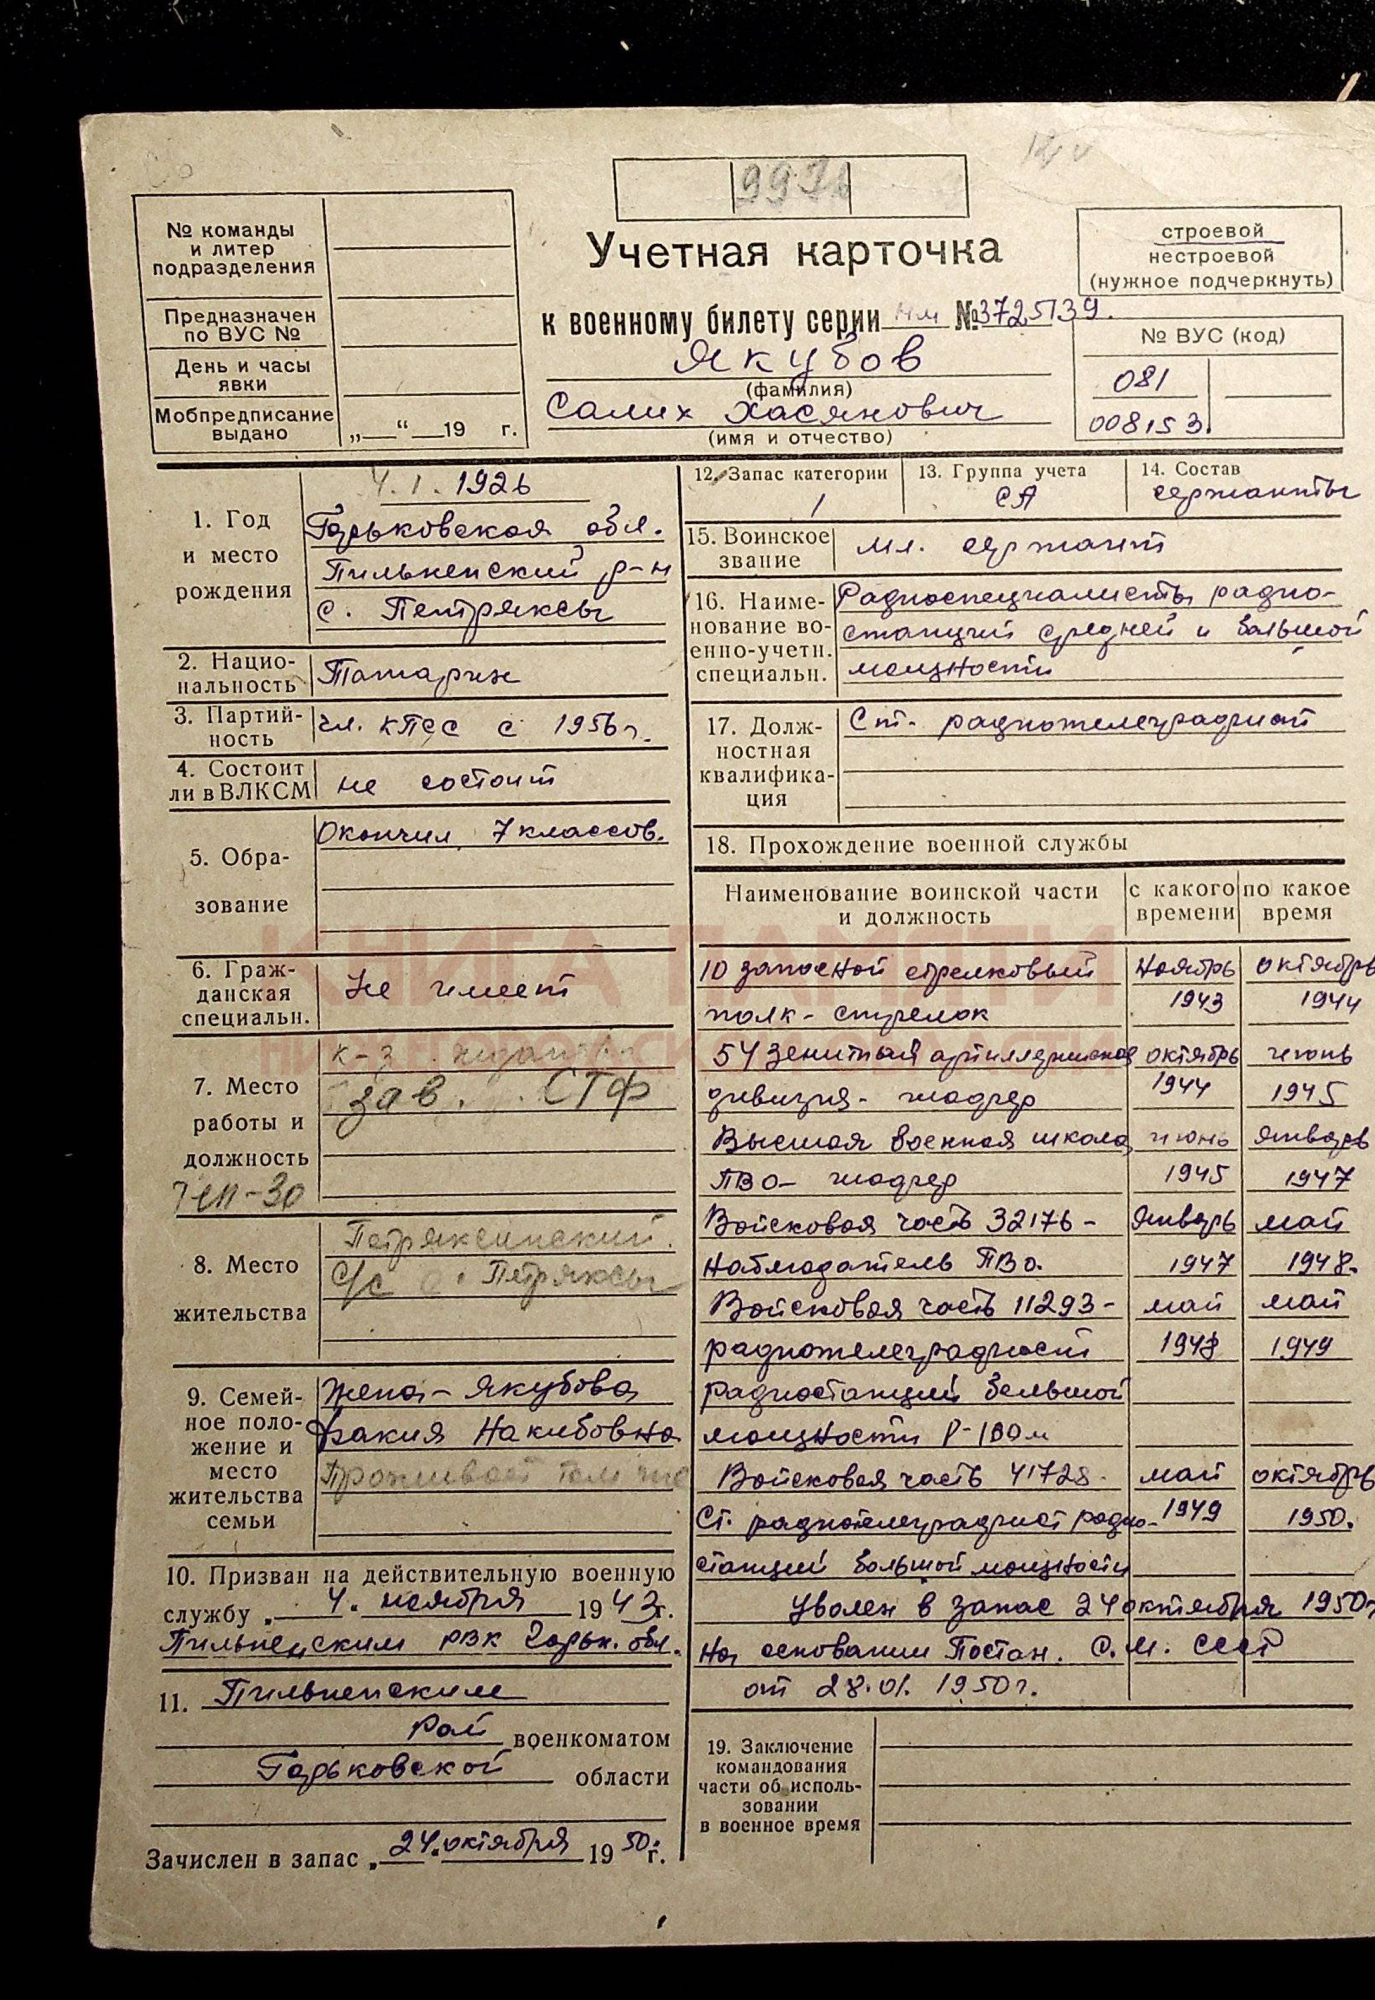 № команды
и литер
подразделения
Предназначен
по ВУС №
День и часы
явки
Мобпредписание
выдано
„__“ __19 г.
Учетная карточка
к военному билету серии НМ № 3725139.
Якубов
(фамилия)
Салих Хасянович
(имя и отчество)
строевой
нестроевой
(нужное подчеркнуть)
№ ВУС (код)
081
008153.
1. Год
и место
рождения
4. 1. 1926
Горьковская обл.
Пильненский р-н
с. Петряксы
2. Национальность
Татарин
3. Партийность
чл. КПСС с 1956 г.
4. Состоит
ли в ВЛКСМ
не состоит
5. Образование
Окончил 7 классов.
6. Гражданская
специальн.
Не имеет
7. Место
работы и
должность
к-з
зав. СТФ
8. Место
жительства
Петряксинский
с/с с. Петряксы
9. Семейное положение и
место
жительства
семьи
Жена - Якубова
Закия Накибовна
Проживает там же
10. Призван на действительную военную
службу „ 4. ноября 1943 г.
Пильненским РВК Горьк. обл.
11. Пильненским
Рай военкоматом
Горьковской области
Зачислен в запас „ 24 “ октября 1950 г.
12. Запас категории
1
13. Группа учета
СА
14. Состав
сержанты
15. Воинское
звание
Мл. сержант
16. Наименование военно-учетн.
специальн.
Радиоспециалисты радио-
станций средней и большой
мощности
17. Должностная
квалификация
Ст. радиотелеграфист
18. Прохождение военной службы
Наименование воинской части
и должность
с какого
времени
по какое
время
10 запасной стрелковый ноябрь октябрь
полк - стрелок 1943 1944
54 зенитная артиллерийская октябрь июнь
дивизия - 1944 1945
Высшая военная школа июнь январь
ПВО - 1945 1947
Войсковая часть 32176 - январь май
наблюдатель ПВО. 1947 1948.
Войсковая часть 11293 - май май
радиотелеграфист 1948 1949
радиостанций большой
мощности Р-100 м
Войсковая часть 41728 май октябрь
Ст. радиотелеграфист радио- 1949 1950.
станций большой мощности
Уволен в запас 24 октября 1950 г.
на основании Постан. С.М. СССР
от 28.01. 1950 г.
19. Заключение
командования
части об использовании
в военное время
КНИГА ПАМЯТИ
НИЖЕГОРОДСКОЙ ОБЛАСТИ